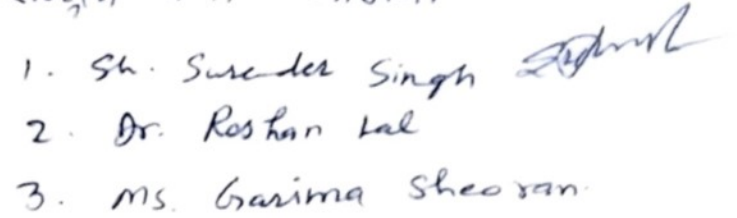 1. Sh. Surender Singh
2. Dr. Roshan Lal
3. Ms. Garima Sheoran